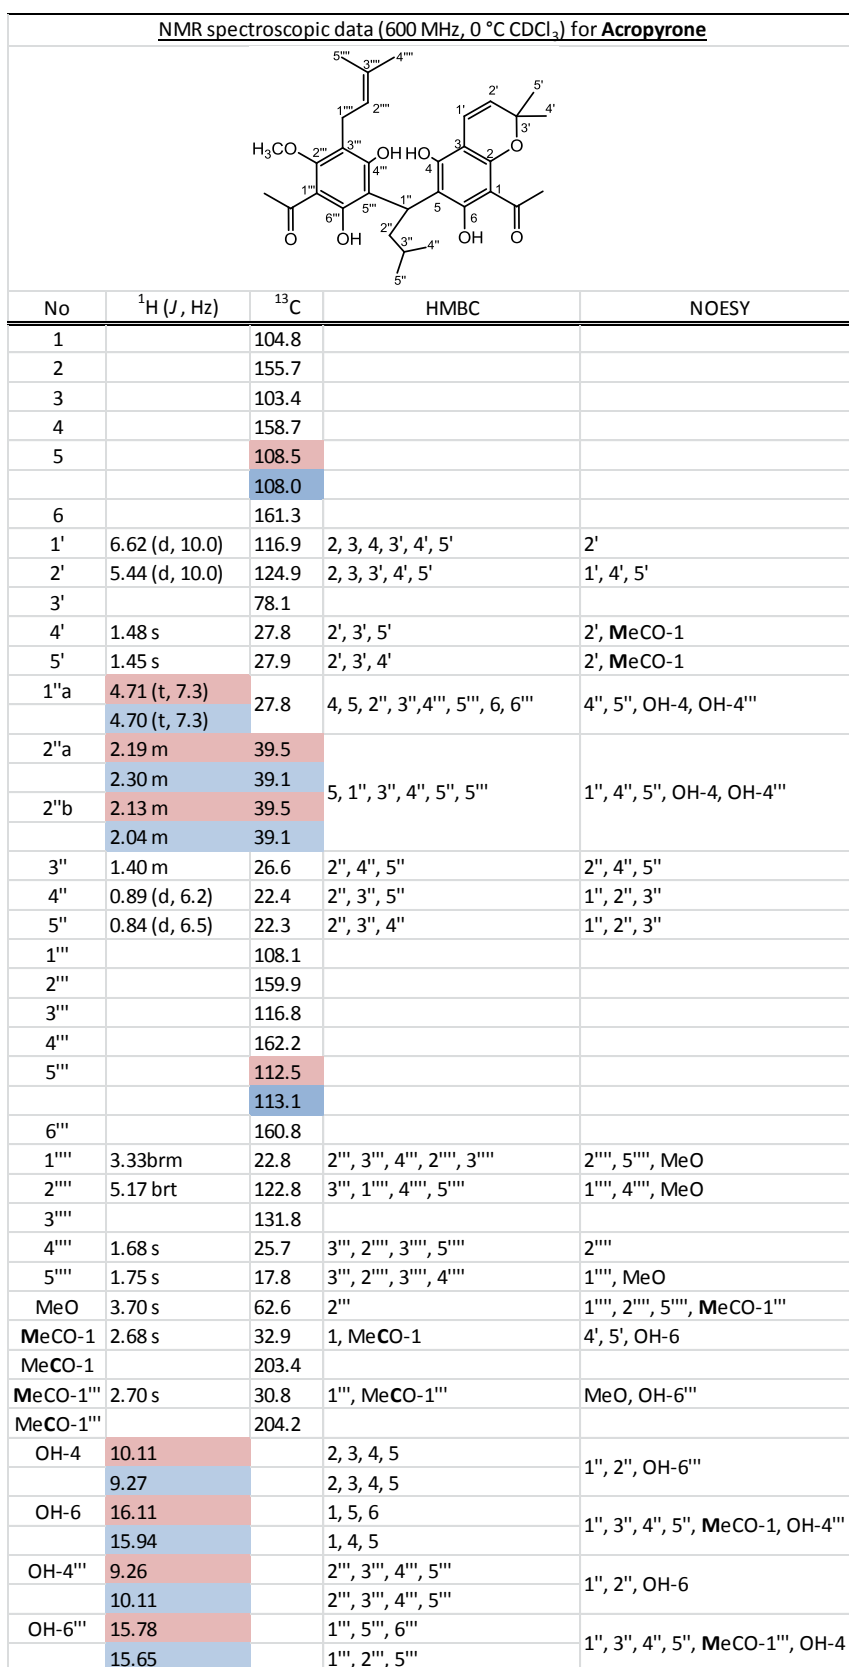 NMR spectroscopic data (600 MHz, 0 °C CDCl3) for Acropyrone
5'''' 3'''' 4''''
1'''' 2''''
2' 5'
1' 4'
3'
H3CO 2''' 3''' OH HO 3 O
4''' 4 2
1''' 1'' 1
6''' 5''' 5 6
O OH 2'' OH O
3'' 4''
5''
No 1H (J, Hz) 13C HMBC NOESY
1 104.8
2 155.7
3 103.4
4 158.7
5 108.5
108.0
6 161.3
1' 6.62 (d, 10.0) 116.9 2, 3, 4, 3', 4', 5' 2'
2' 5.44 (d, 10.0) 124.9 2, 3, 3', 4', 5' 1', 4', 5'
3' 78.1
4' 1.48 s 27.8 2', 3', 5' 2', MeCO-1
5' 1.45 s 27.9 2', 3', 4' 2', MeCO-1
1''a 4.71 (t, 7.3) 27.8 4, 5, 2'', 3'',4''', 5''', 6, 6''' 4'', 5'', OH-4, OH-4'''
4.70 (t, 7.3)
2''a 2.19 m 39.5 5, 1'', 3'', 4'', 5'', 5''' 1'', 4'', 5'', OH-4, OH-4'''
2.30 m 39.1
2''b 2.13 m 39.5
2.04 m 39.1
3'' 1.40 m 26.6 2'', 4'', 5'' 2'', 4'', 5''
4'' 0.89 (d, 6.2) 22.4 2'', 3'', 5'' 1'', 2'', 3''
5'' 0.84 (d, 6.5) 22.3 2'', 3'', 4'' 1'', 2'', 3''
1''' 108.1
2''' 159.9
3''' 116.8
4''' 162.2
5''' 112.5
113.1
6''' 160.8
1'''' 3.33brm 22.8 2''', 3''', 4''', 2'''', 3'''' 2'''', 5'''', MeO
2'''' 5.17 brt 122.8 3''', 1'''', 4'''', 5'''' 1'''', 4'''', MeO
3'''' 131.8
4'''' 1.68 s 25.7 3''', 2'''', 3'''', 5'''' 2''''
5'''' 1.75 s 17.8 3''', 2'''', 3'''', 4'''' 1'''', MeO
MeO 3.70 s 62.6 2''' 1'''', 2'''', 5'''', MeCO-1'''
MeCO-1 2.68 s 32.9 1, MeCO-1 4', 5', OH-6
MeCO-1 203.4
MeCO-1''' 2.70 s 30.8 1''', MeCO-1''' MeO, OH-6'''
MeCO-1''' 204.2
OH-4 10.11 2, 3, 4, 5 1'', 2'', OH-6'''
9.27 2, 3, 4, 5
OH-6 16.11 1, 5, 6 1'', 3'', 4'', 5'', MeCO-1, OH-4'''
15.94 1, 4, 5
OH-4''' 9.26 2''', 3''', 4''', 5''' 1'', 2'', OH-6
10.11 2''', 3''', 4''', 5'''
OH-6''' 15.78 1''', 5''', 6''' 1'', 3'', 4'', 5'', MeCO-1''', OH-4
15.65 1''', 2''', 5'''